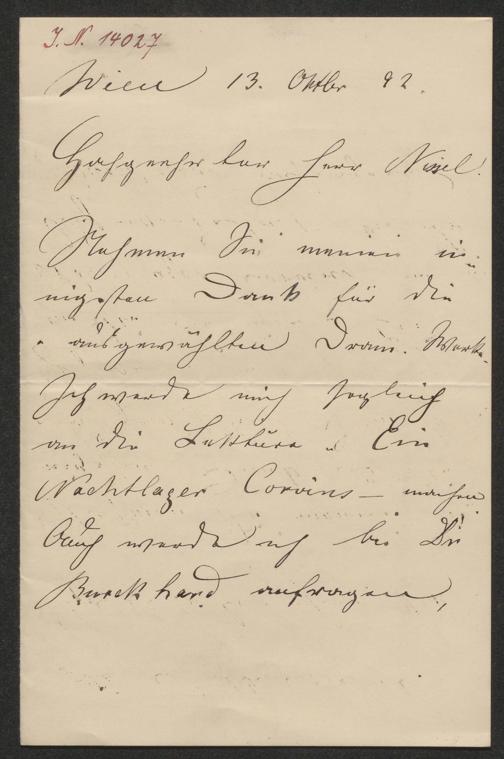 J. N. 14027
Wien 13. Oktbr 92.
Hochgeehrter Herr Nissel.
Nehmen Sie meinen in-
nigsten Dank für die
ausgewählten Dram. Werke.
Ich werde mich sogleich
an die Lektüre „Ein
Nachtlager Corvins – machen
Auch werde ich bei Dr
Burckhard anfragen,